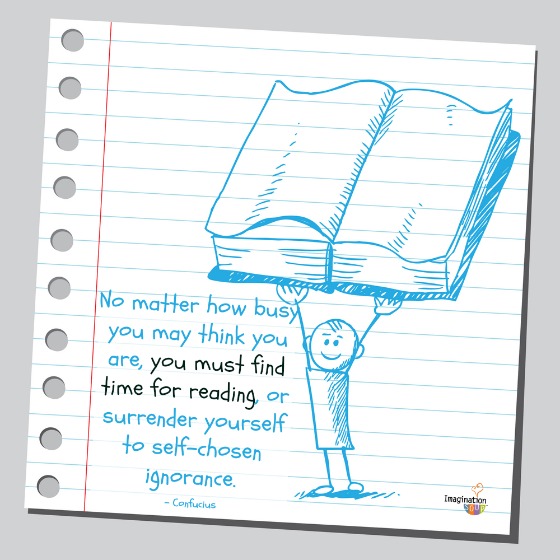 No matter how busy
you may think you
are, you must find
time for reading, or
surrender yourself
to self-chosen
ignorance.
- Confucius
Imagination
SOUP